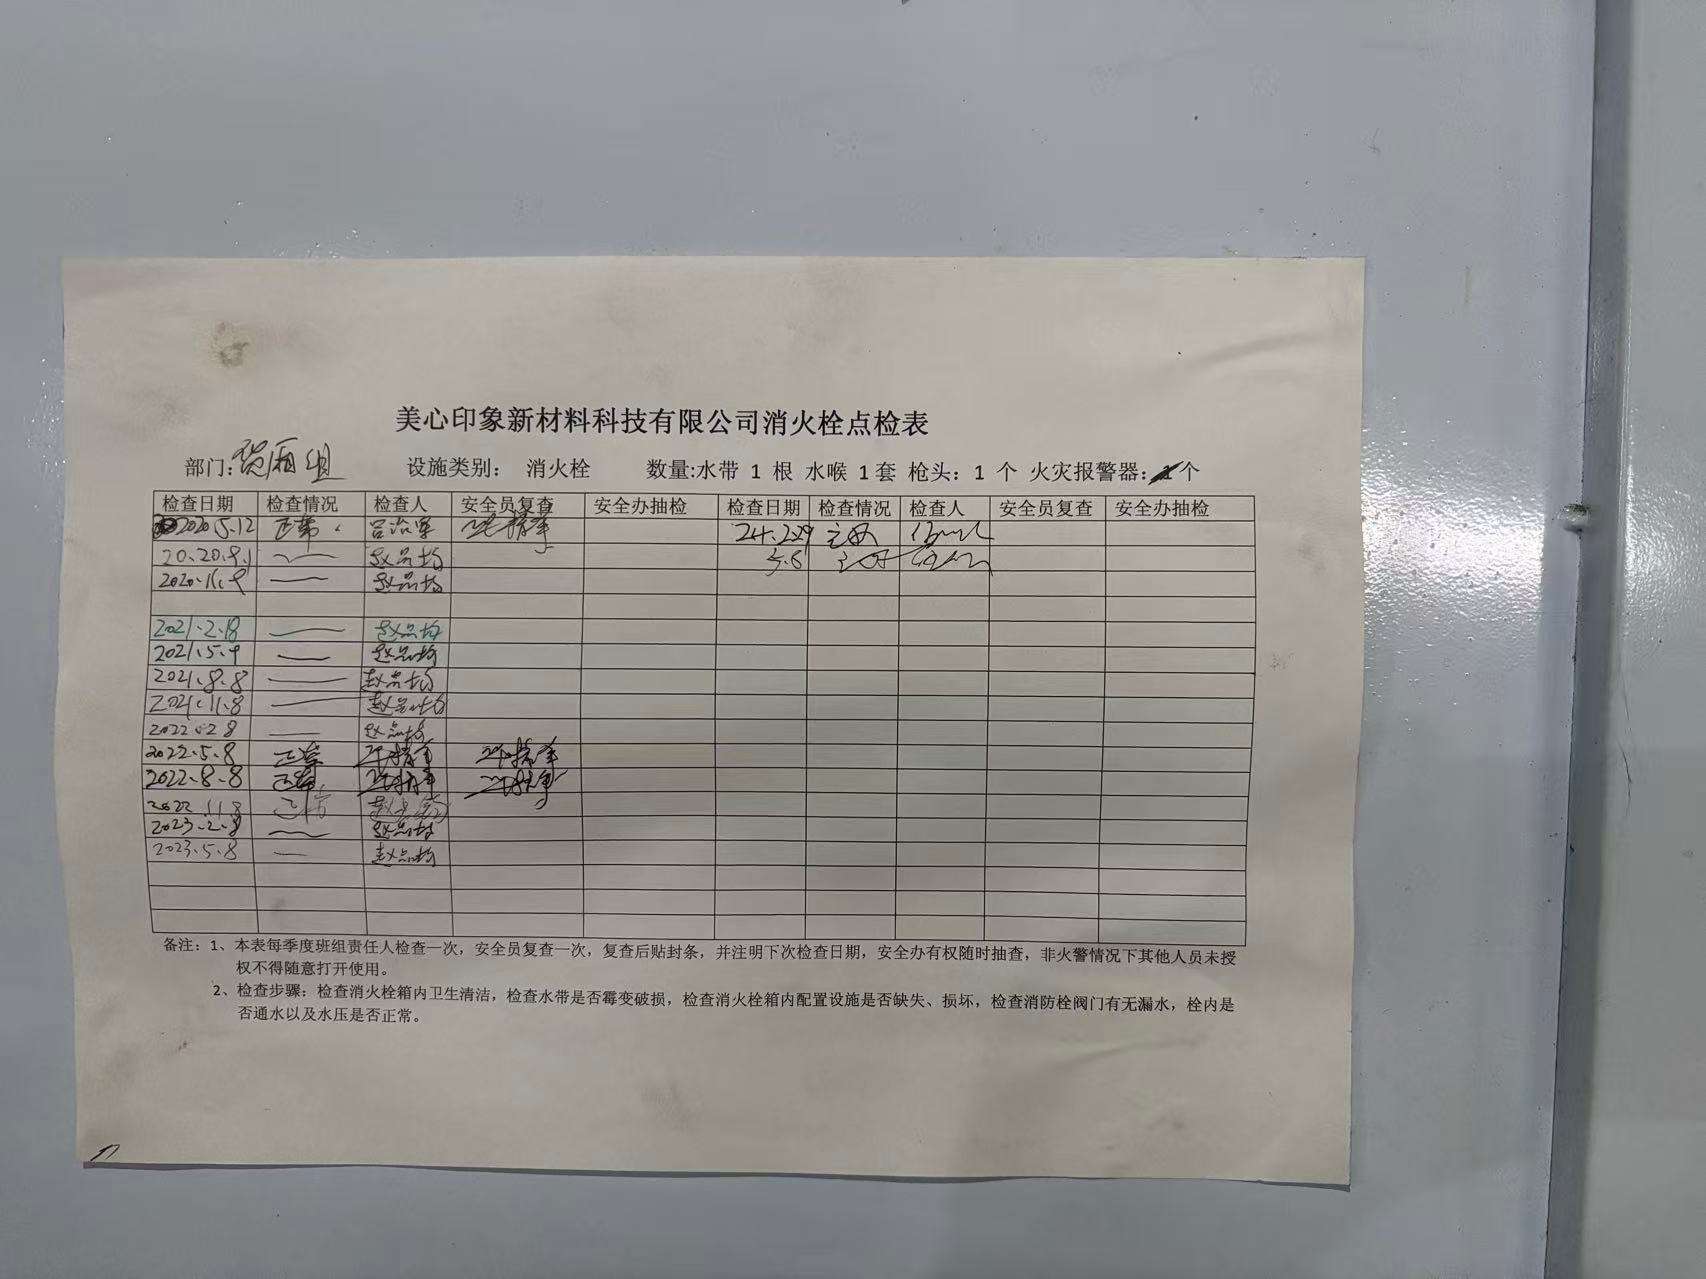 美心印象新材料科技有限公司消火栓点检表
部门: 组 设施类别: 消火栓 数量:水带 1 根 水喉 1套 枪头: 1 个 火灾报警器: 个
检查日期 检查情况 检查人 安全员复查 安全办抽检 检查日期 检查情况 检查人 安全员复查 安全办抽检
2020.5.12 正常 24.2.29
20.20.8.1 赵品均 5.6
2020.11.9 赵品均
2021.2.18 赵品均
2021.5.9 赵品均
2021.8.8 赵品均
2021.11.8 赵品均
2022.2.8 赵品均
2022.5.8 正常
2022.8.8 正常
2022.11.8 正常
2023.2.8 赵品均
2023.5.8 赵品均
备注: 1、本表每季度班组责任人检查一次，安全员复查一次，复查后贴封条，并注明下次检查日期，安全办有权随时抽查，非火警情况下其他人员未授
权不得随意打开使用。
2、检查步骤: 检查消火栓箱内卫生清洁，检查水带是否霉变破损，检查消火栓箱内配置设施是否缺失、损坏，检查消防栓阀门有无漏水，栓内是
否通水以及水压是否正常。